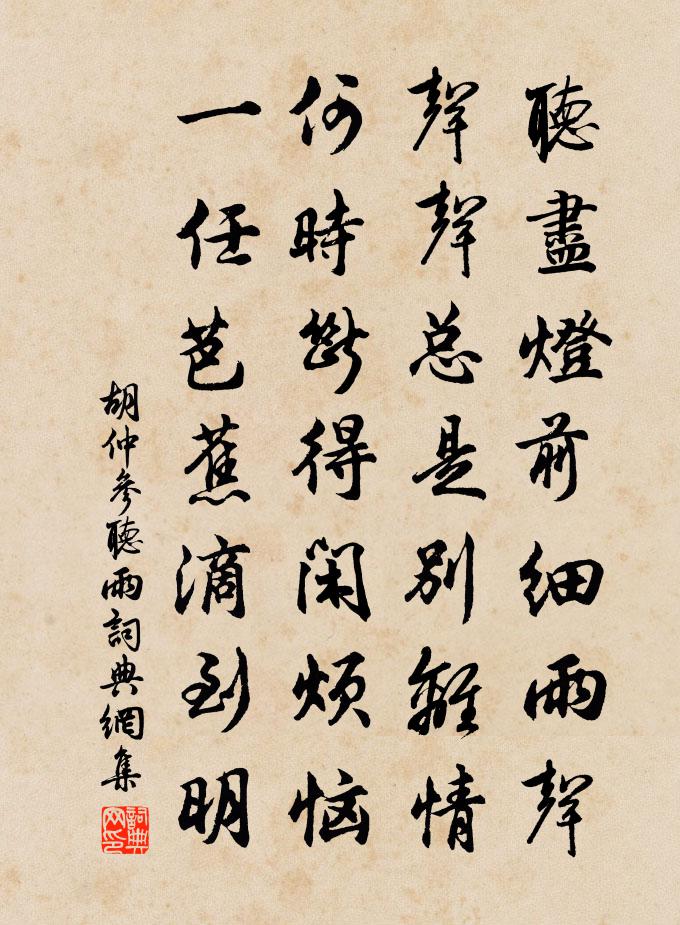 聽盡燈前細雨聲
聲聲总是別離情
何時斷得閑煩恼
一任芭蕉滴到明
胡仲參聽雨詞典網集
詞典网印